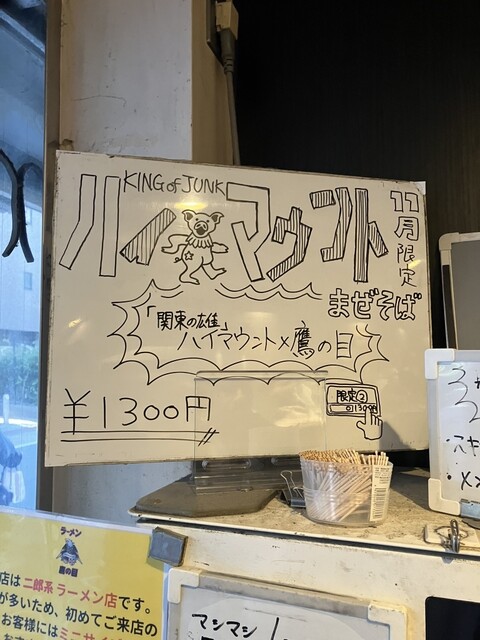 KING of JUNK
ハイマウント
11月限定
まぜそば
「関東の雄」
ハイマウント×鷹の目
¥1300円
限定②
ラーメン
鷹の目
店は二郎系ラーメン店です。
が多いため、初めてご来店の
お客様にはミニサイ
マシマシ